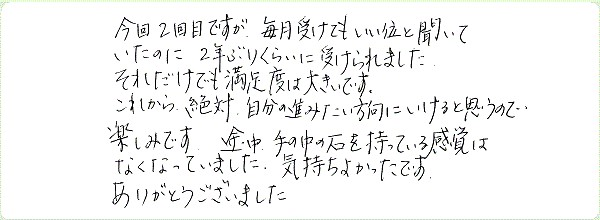 今回2回目ですが、毎月受けてもいい位と聞いて
いたのに 2年ぶりくらいに受けられました。
それだけでも満足度は大きいです。
これから、絶対、自分の進みたい方向にいけると思うので…
楽しみです。 途中、手の中の石を持っている感覚は
なくなっていました。気持ちよかったです。
ありがとうございました